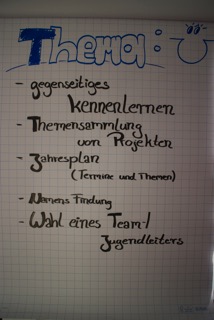 Thema:
- gegenseitiges
kennenlernen
- Themensammlung
von Projekten
- Jahresplan
(Termine und Themen)
- Namens Findung
- Wahl eines Team-/
Jugendleiters